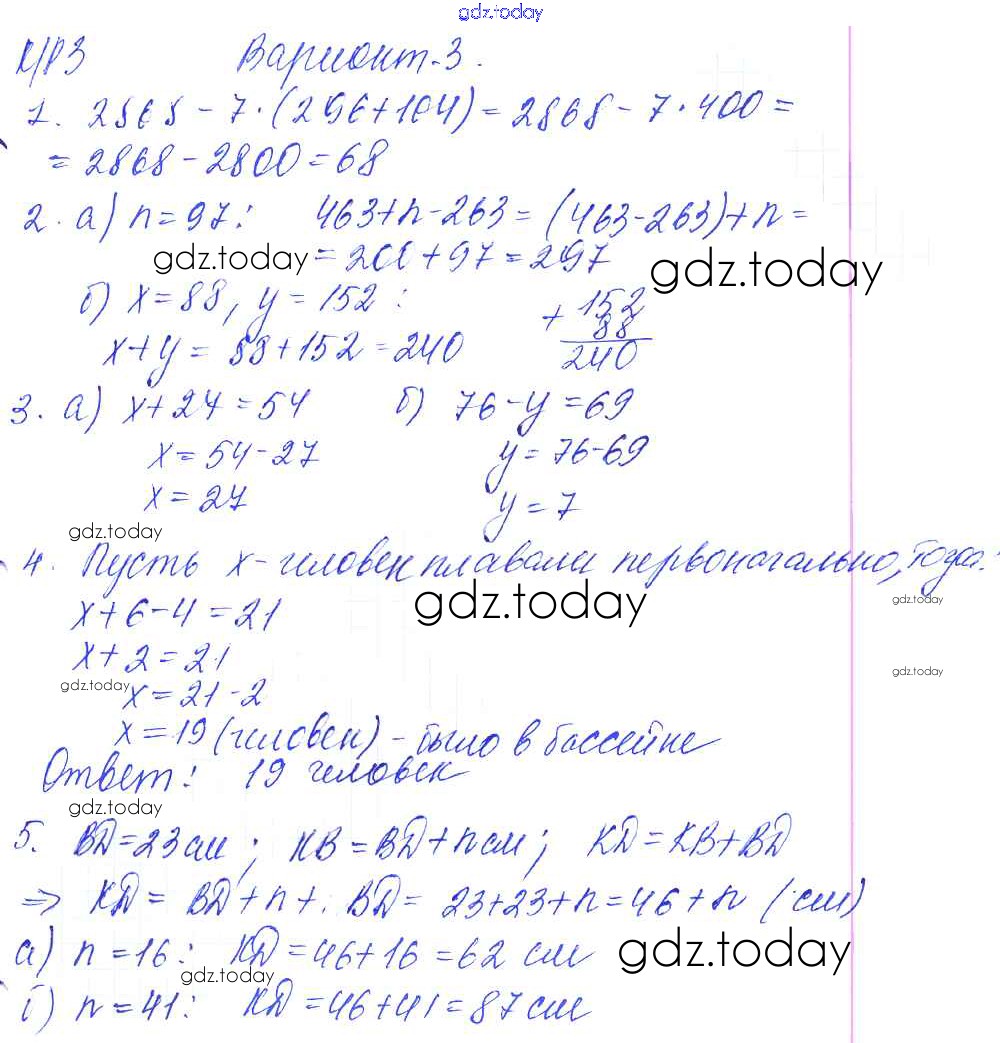 gdz.today
К/Р 3 Вариант-3.
1. 2868 - 7·(296+104) = 2868 - 7·400 =
= 2868 - 2800 = 68
2. а) n = 97: 463+n-263 = (463-263)+n =
gdz.today = 200 + 97 = 297 gdz.today
б) x = 88, y = 152 : + 152
88
x+y = 88+152 = 240 240
3. а) x+27 = 54 б) 76-y = 69
x = 54-27 y = 76-69
x = 27 y = 7
gdz.today
4. Пусть x - человек плавали первоначально, тогда:
x+6-4 = 21 gdz.today gdz.today
x+2 = 21 gdz.today
gdz.today x = 21-2
x = 19 (человек) - было в бассейне
Ответ: 19 человек
gdz.today
5. BD = 23 см ; KB = BD + n см ; KD = KB + BD
=> KD = BD + n + BD = 23+23+n = 46+n (см)
а) n = 16 : KD = 46+16 = 62 см gdz.today
gdz.today
б) n = 41 : KD = 46+41 = 87 см